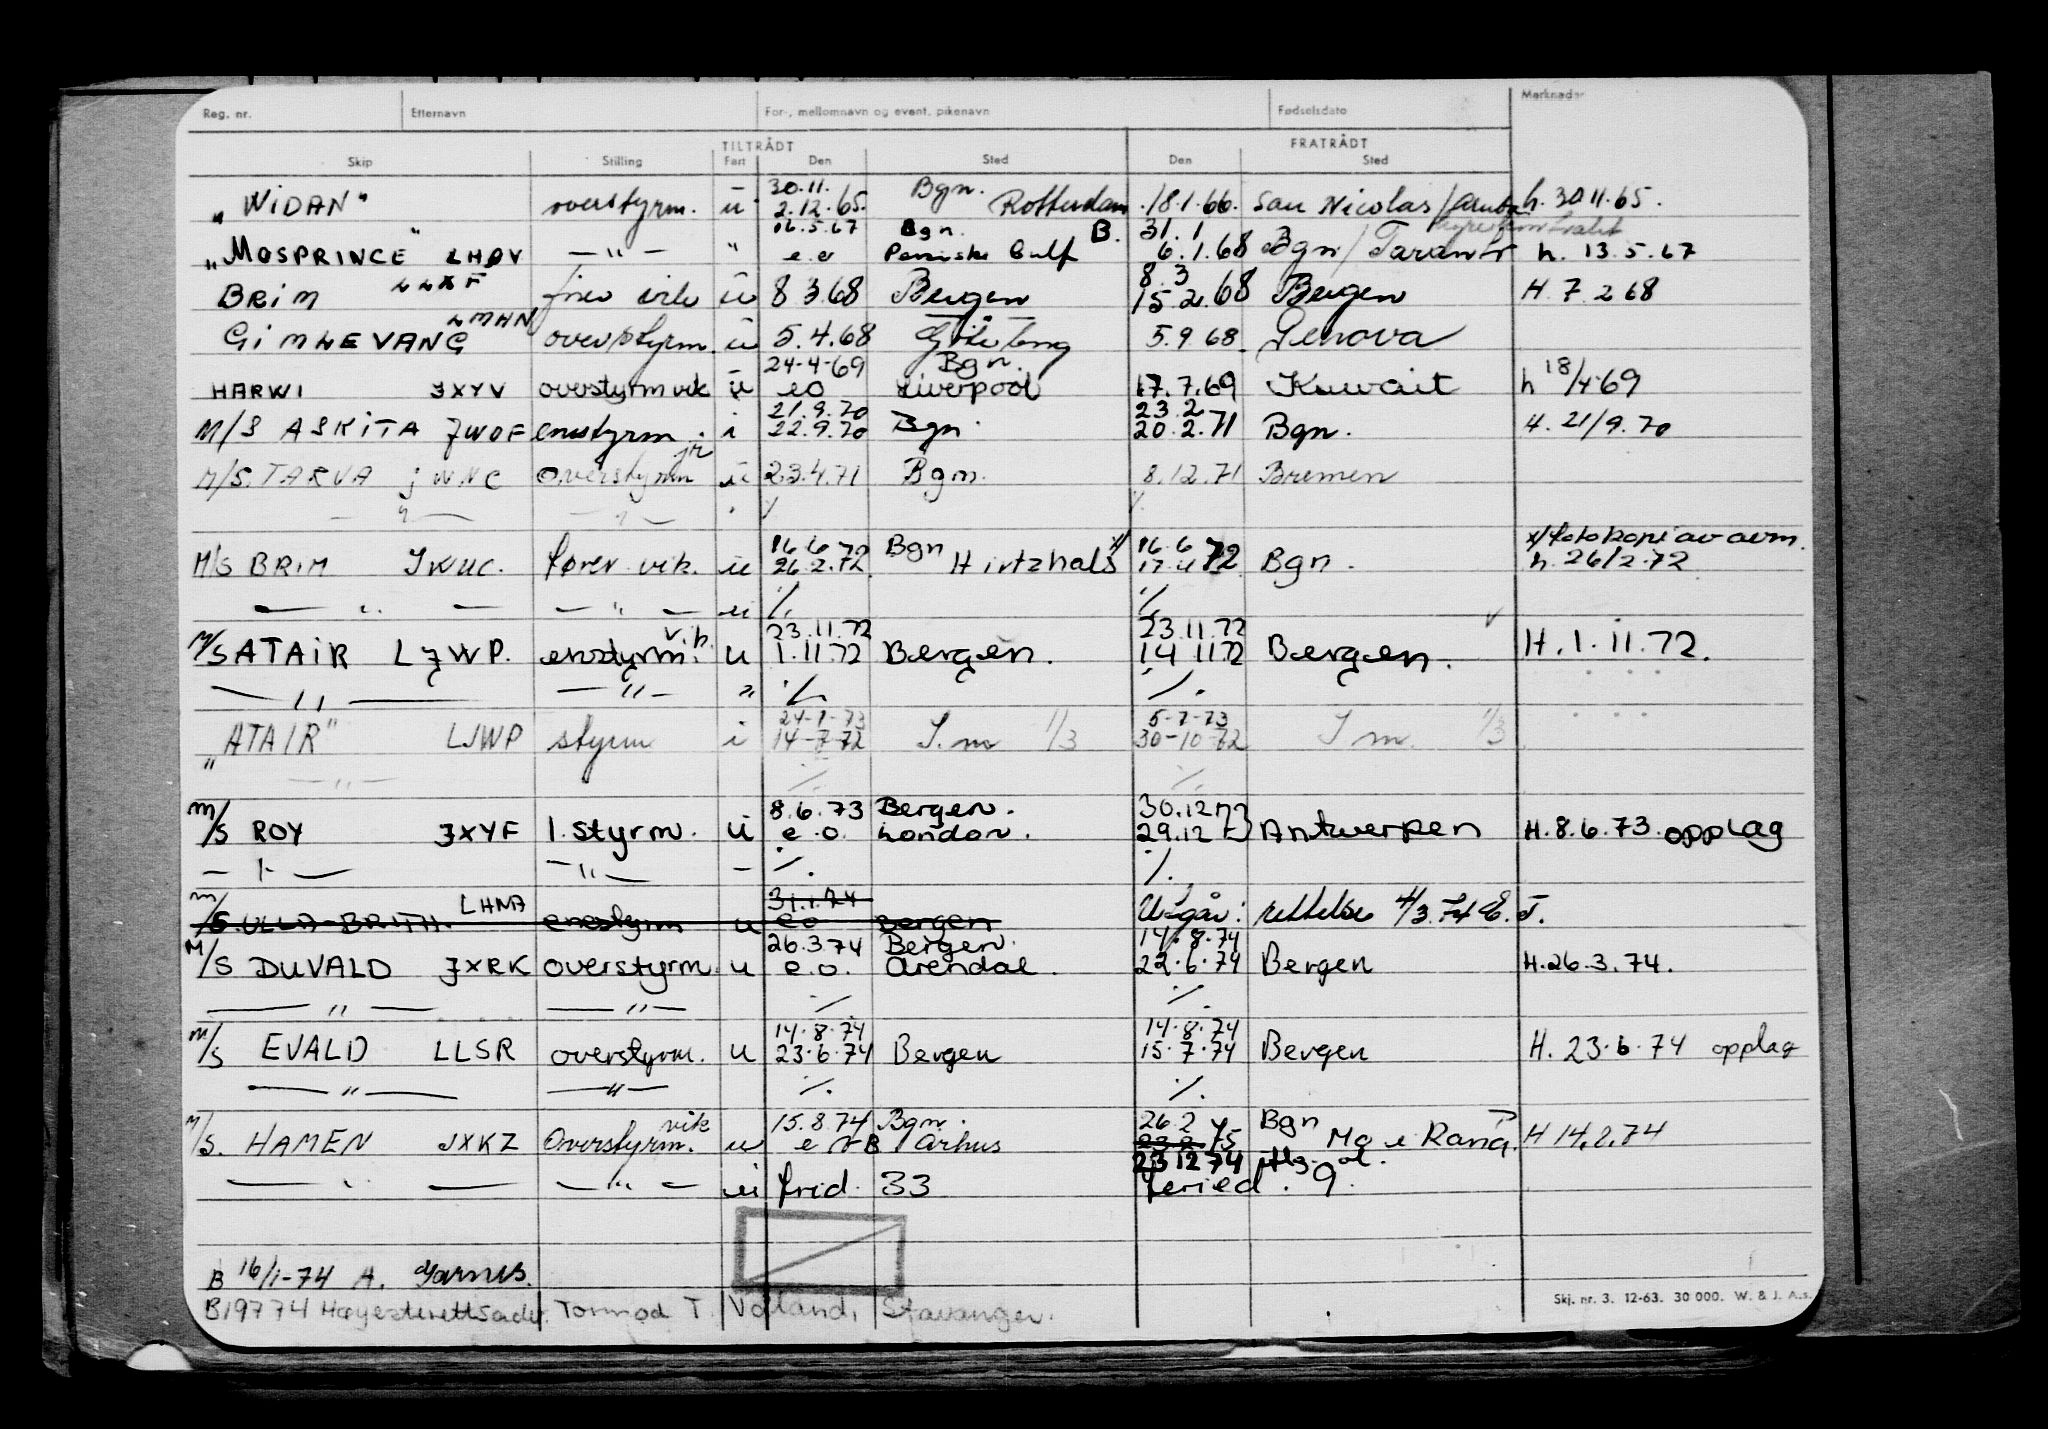 Reg. nr. Etternavn For-, mellomnavn og event. pikenavn Fødselsdato Merknader
TILTRÅDT FRATRÅDT
Skip Stilling Fart Den Sted Den Sted
30.11. Bgn.
"WIDAN" overstyrm. u 2.12.65. Rotterdam 18.1.66. San Nicolas/Aruba h. 30 11.65.
16.5.67 Bgn. B. 31.1
"MOSPRINCE" LHDV — " — " e.o Persiske Gulf 6.1.68 Bgn/Taranto h. 13.5.67
LLXF 8.3
BRIM u 8 3.68 Bergen 15.2.68 Bergen H 7.2 68
LMHN
GIMLEVANG overstyrm. u 5.4.68 Göteborg 5.9 68. Genova
24-4-69 Bgn.
HARWI JXYV overstyrm vik u eo Liverpool 17.7.69 Kuwait h 18/4 69
21.9.70 23.2
M/S ASKITA JWOF enestyrm. i 22.9.70 Bgn 20.2.71 Bgn. H. 21/9.70
jr
M/S. TARVA JWNC overstyrm u 23.4.71 Bgn. 8.12.71 Bremen
— " — — " — " ./. ./.
16.6.72 Bgn x/ 16.6 x/ fotokopi av avm.
M/S BRIM JKUC. fører vik. u 26.2.72. Hirtzhals 17.4 72 Bgn. h. 26/2-72
— " — — " — u ./. ./.
vik 23.11.72 23.11.72
M/S ATAIR LJWP. enestyrm. u 1.11.72 Bergen. 14 11 72 Bergen. H.1.11.72.
— " — — " — " ./. ./.
24-1-73 5-7-73
"ATAIR" LJWP styrm i 14-7-72 I.m 1/3 30-10-72 I m. 1/3
— " — ./. ./.
8.6.73 Bergen. 30.12 73
M/S ROY JXYF 1.styrm. u e.o. London. 29.12 Antwerpen H.8.6.73. opplag
— " — — " — — ./. ./.
LHNA 31.1.74
M/S. ULLA-BRITH. enestyrm u eo Bergen Utgår: rettelse 4/3.74 E.T.
26.3 74 Bergen. 14.8.74
M/S DUVALD JXRK overstyrm. u e.o. Arendal. 22.6.74 Bergen H.26.3.74.
— " — — " — ./. ./.
14.8.74 14.8.74
M/S EVALD LLSR overstyrm. u 23.6.74 Bergen 15.7.74 Bergen H. 23.6.74 opplag
— " — — " — ./. ./.
vik 15.8.74 Bgn. 26.2 75 Bgn
M/S. HAMEN JXKZ Overstyrm. u e o B Århus 23.2 Mo i Rana. H 14.8.74
23 12 74
— " — — " — u frid. 33 feried. 9.
B 16/1-74 A. Garnes.
B19774 Høyesterettsadv. Tormod T. Våland, Stavanger.
Skj. nr. 3. 12-63. 30 000. W. & J. A.s.